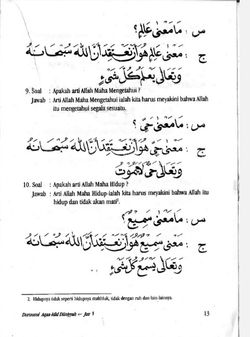 س : مَامَعْنَى عَالِمٌ ؟
ج : مَعْنَى عَالِمٌ هُوَ أَنْ نَعْتَقِدَ أَنَّ اللهَ سُبْحَانَهُ
وَتَعَالَى يَعْلَمُ كُلَّ شَيْءٍ
9. Soal : Apakah arti Allah Maha Mengetahui ?
Jawab : Arti Allah Maha Mengetahui ialah kita harus meyakini bahwa Allah
itu mengetahui segala sesuatu.
س : مَامَعْنَى حَيٌّ ؟
ج : مَعْنَى حَيٌّ هُوَ أَنْ نَعْتَقِدَ أَنَّ اللهَ سُبْحَانَهُ
وَتَعَالَى حَيٌّ لَايَمُوْتُ
10. Soal : Apakah arti Allah Maha Hidup ?
Jawab : Arti Allah Maha Hidup ialah kita harus meyakini bahwa Allah itu
hidup dan tidak akan mati¹.
س : مَامَعْنَى سَمِيْعٌ ؟
ج : مَعْنَى سَمِيْعٌ هُوَ أَنْ نَعْتَقِدَ أَنَّ اللهَ سُبْحَانَهُ
وَتَعَالَى يَسْمَعُ كُلَّ شَيْءٍ
1. Hidupnya tidak seperti hidupnya makhluk, tidak dengan ruh dan lain-lainnya.
Duruusul Aqaa-idid Diiniyyah — Juz 1 13